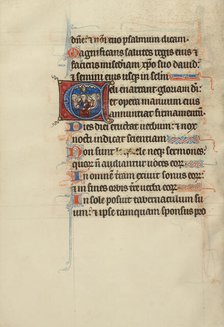 dñe: ⁊ nõi tuo psalmum dicam.
Magnificans salutes regis eius ⁊
faciens misericordiam xp̃o suo dauid:
⁊ semini eius usq; in sclm̃
Celi enarrant gloriam di:
et opera manuum eius
annuntiat firmamentũ.
Dies diei eructat uerbum: ⁊ nox
nocti indicat scientiam
Non sunt loquele neq; sermones:
quorũ ñ audiantur uoces eor̃
In omnẽ terram exiuit sonus eor̃:
⁊ in fines orbis tr̃e uerba eor̃
In sole posuit tabernaculum suum
⁊ ipse tamquam sponsus p̃o